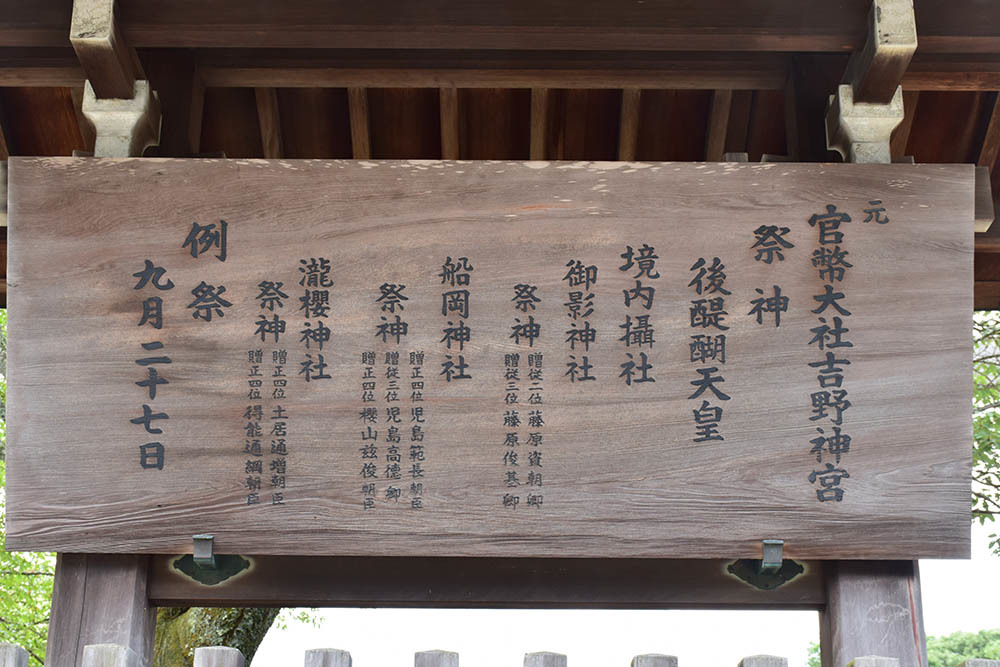 元
官幣大社吉野神宮
祭神
後醍醐天皇
境内攝社
御影神社
祭神
贈従二位 藤原資朝卿
贈従三位 藤原俊基卿
船岡神社
祭神
贈正四位 児島範長朝臣
贈従三位 児島高德卿
贈正四位 櫻山茲俊朝臣
瀧櫻神社
祭神
贈正四位 土居通増朝臣
贈正四位 得能通綱朝臣
例祭
九月二十七日